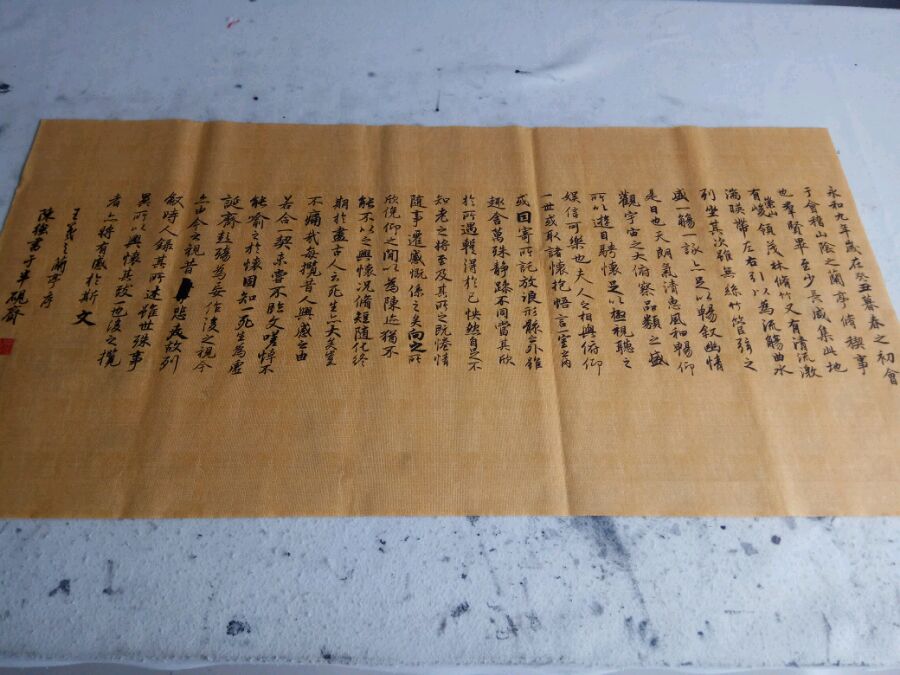 永和九年歲在癸丑暮春之初會
于會稽山陰之蘭亭脩稧事
也羣賢畢至少長咸集此地
有崇山峻領茂林脩竹又有清流激
湍暎帶左右引以為流觴曲水
列坐其次雖無絲竹管弦之
盛一觴一詠亦足以暢叙幽情
是日也天朗氣清惠風和暢仰
觀宇宙之大俯察品類之盛
所以遊目騁懷足以極視聽之
娛信可樂也夫人之相與俯仰
一世或取諸懷抱悟言一室之內
或因寄所託放浪形骸之外雖
趣舍萬殊靜躁不同當其欣
於所遇輙得於己快然自足不
知老之將至及其所之既惓情
隨事遷感慨係之矣向之所
欣俛仰之間以為陳迹猶不
能不以之興懷況脩短隨化終
期於盡古人云死生亦大矣豈
不痛哉每攬昔人興感之由
若合一契未嘗不臨文嗟悼不
能喻之於懷固知一死生為虛
誕齊彭殤為妄作後之視今
亦由今之視昔悲夫故列
叙時人錄其所述雖世殊事
異所以興懷其致一也後之攬
者亦將有感於斯文
王羲之蘭亭序
陳強書于半硯齋